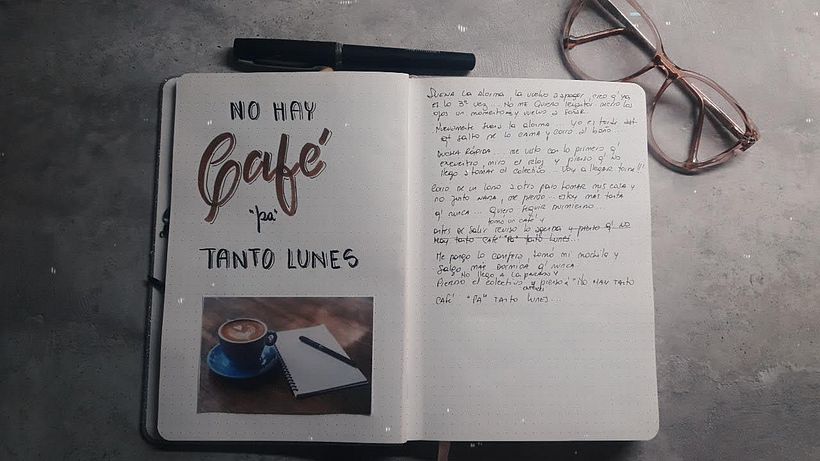 NO HAY
Café
"pa"
TANTO LUNES
Suena la alarma la vuelvo a apagar, creo q' ya
es la 3º vez... No me quiero levantar cierro los
ojos un momento y vuelvo a soñar.
Nuevamente suena la alarma... yo es tarde
q' salto de la cama y corro al baño...
Ducha rápida... me visto con lo primero q'
encuentro, miro el reloj y pienso q' no
llego a tomar el colectivo... voy a llegar tarde!!!
Corro de un lado a otro para tomar mis cosas y
no junto nada, me pierdo... estoy más tonta
q' nunca... quiero seguir durmiendo...
tomo un café y
antes de salir reviso la agenda y pienso q' no
hay tanto café "pa" tanto lunes...!
Me pongo la campera, tomo mi mochila y
salgo más dormida q' nunca
No llego a la parada y
pierdo el colectivo y pienso "No hay tanto
café "pa" tanto lunes...